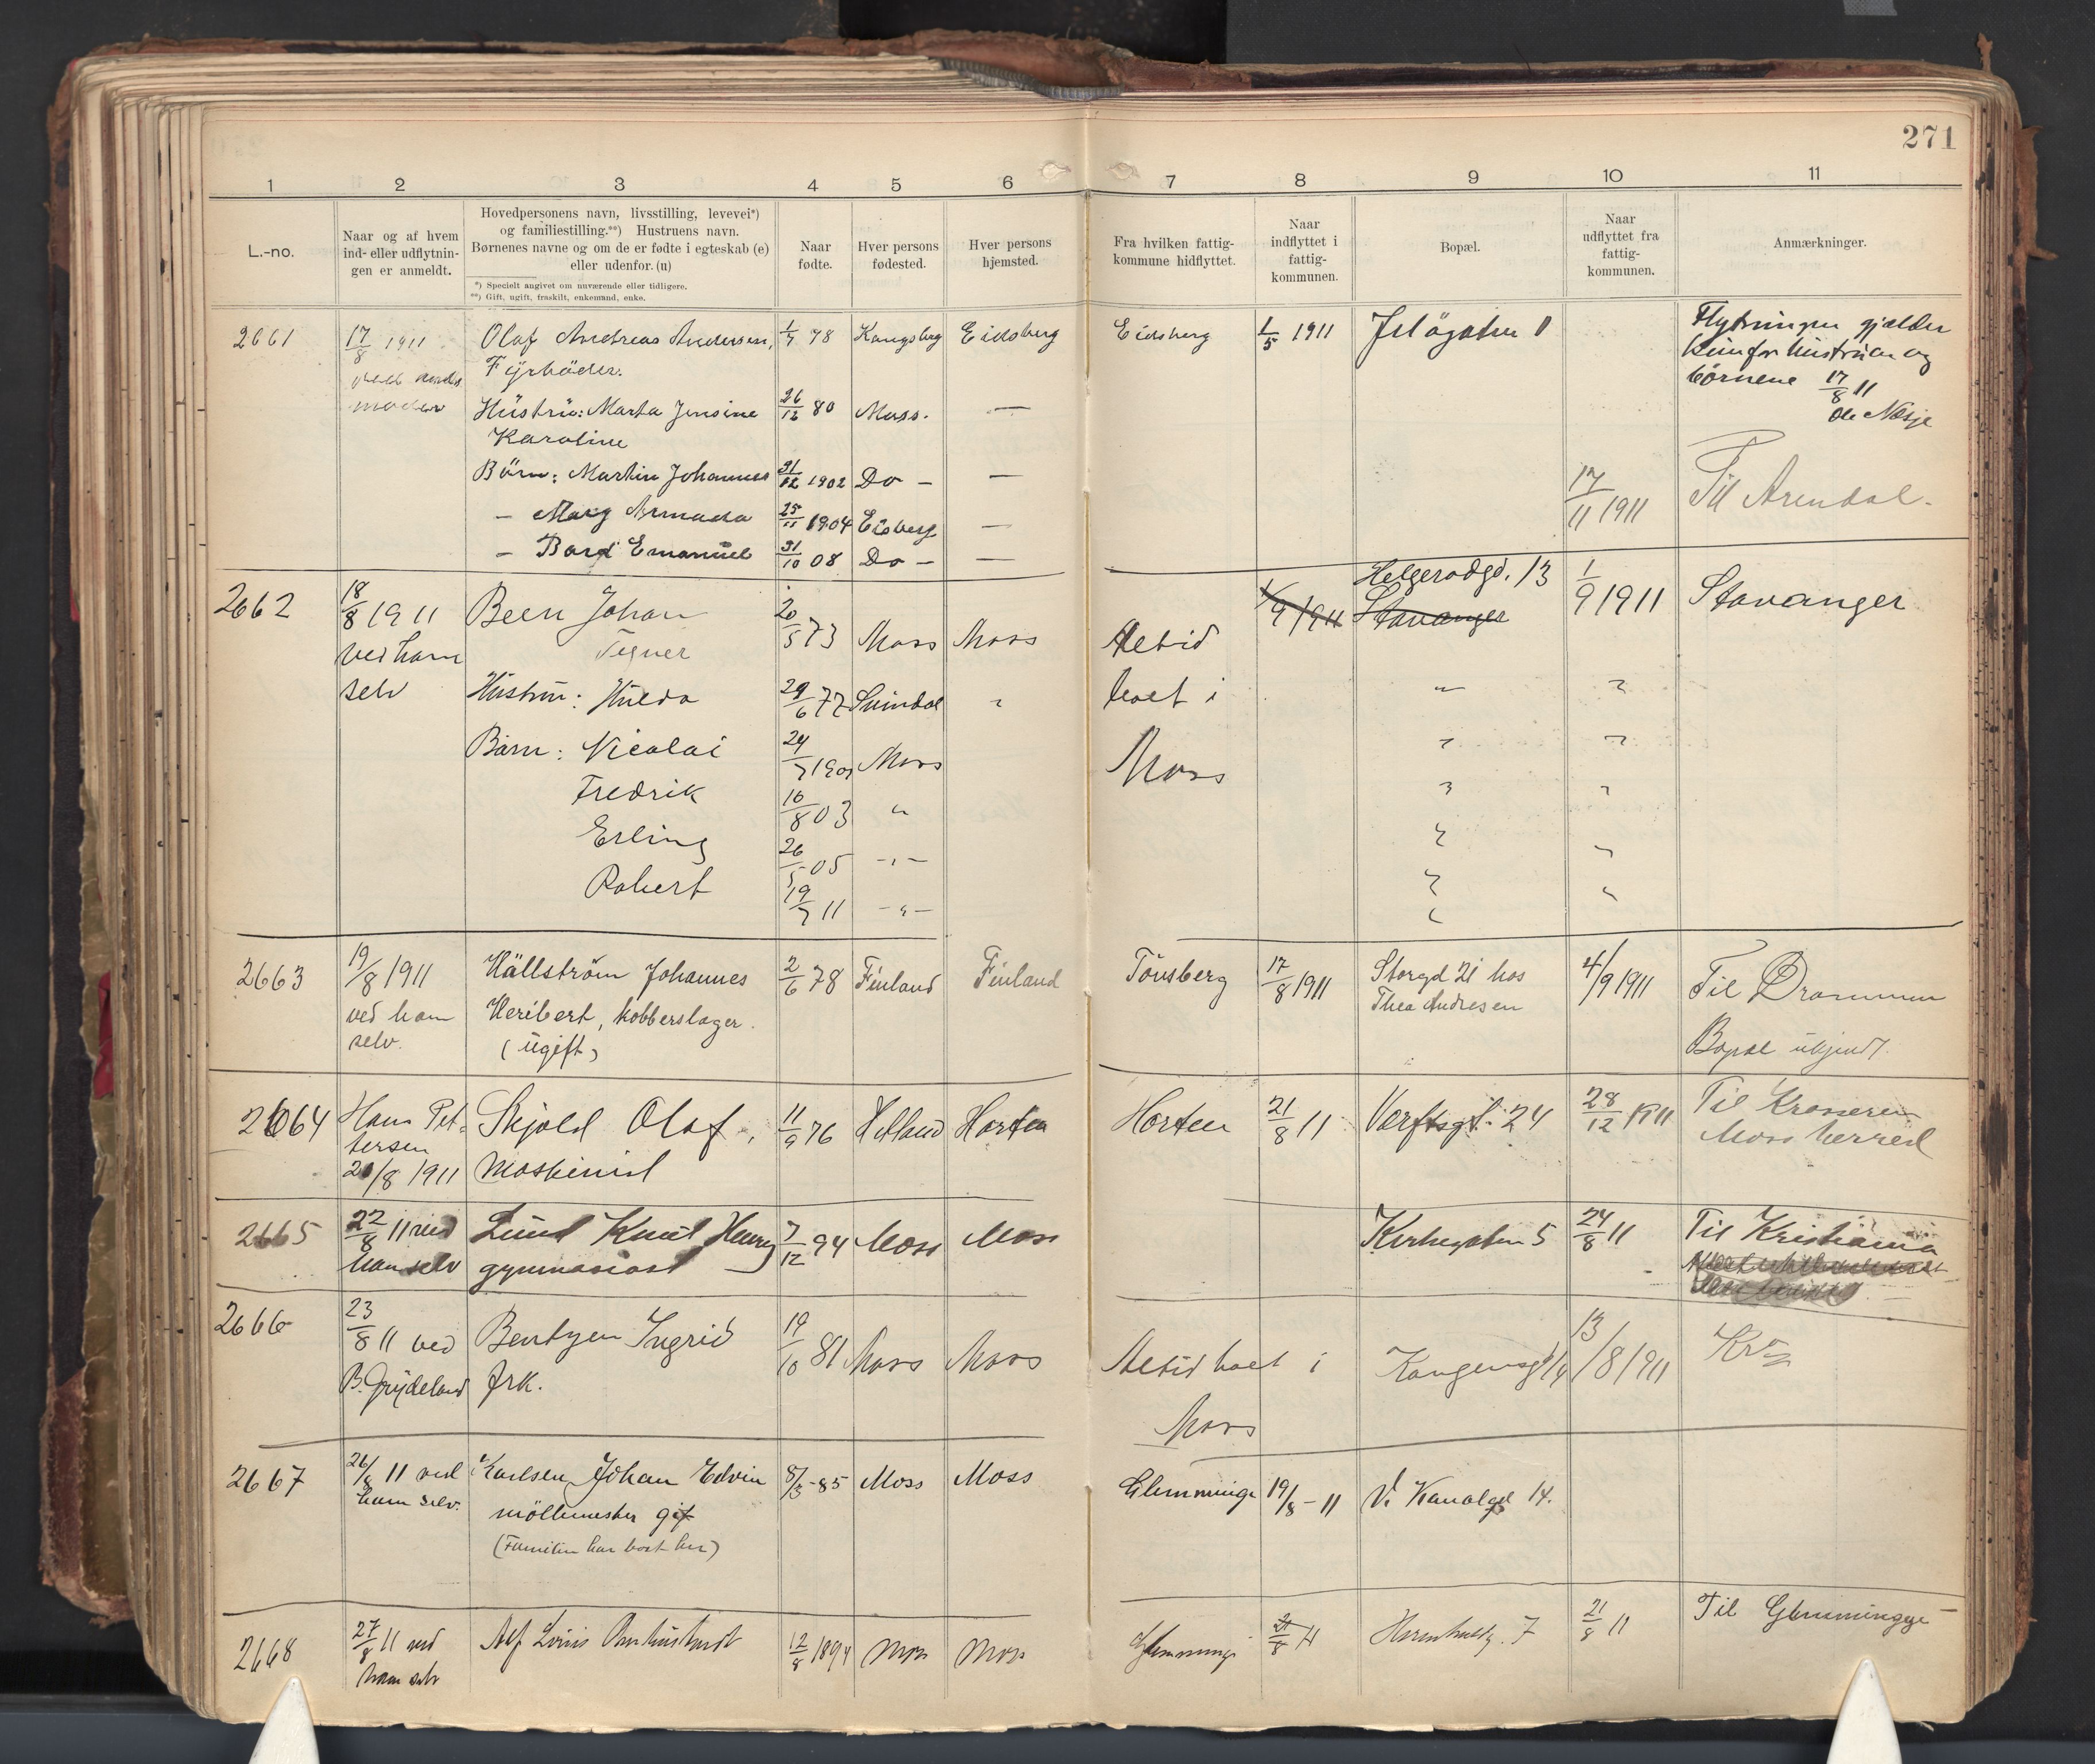 271
1 2 3 4 5 6 7 8 9 10 11
L.-no.
Naar og af hvem
ind- eller udflytnin-
gen er anmeldt.
Hovedpersonens navn, livsstilling, levevei*)
og familiestilling.**) Hustruens navn.
Børnenes navne og om de er fødte i egteskab (e)
eller udenfor. (u)
*) Specielt angivet om nuværende eller tidligere.
**) Gift, ugift, fraskilt, enkemand, enke.
Naar
fødte.
Hver persons
fødested.
Hver persons
hjemsted.
Fra hvilken fattig-
kommune hidflyttet.
Naar
indflyttet i
fattig-
kommunen.
Bopæl.
Naar
udflyttet fra
fattig-
kommunen.
Anmærkninger.
2661 17/8 1911 Olaf Andreas Andersen, 1/7 78 Kongsberg Eidsberg Eidsberg 1/5 1911 Jelögaten Flytningen gjælder
Fyrböder. kun for hustruen og
moder børnene 17/8 11
Hüstrü: Marta Jensine 26/12 80 Moss. — Ole Næsje
Karoline
Börn: Martin Johannes 31/12 1902 Do - — 17/11 1911 Til Arendal.
- Mary Armada 25/11 1904 Eidsberg —
- Bard Emanuel 31/10 08 Do - —
2662 18/8 1911 Been Johan 20/5 73 Moss Moss Altid 1/9 1911 Helgerødgd. 13 1/9 1911 Stavanger
ved ham Tegner Stavanger
selv Hustru: Hulda 29/6 77 Svindal " boet i " "
Barn: Nicolai 24/7 1901 Moss Moss " "
Fredrik 16/8 03 " " "
Erling 26/5 05 -"- " "
Robert 19/7 11 -"- " "
2663 19/8 1911 Hällström Johannes 2/6 78 Finland Finland Tönsberg 17/8 1911 Storgd 21 hos 4/9 1911 Til Drammen
ved ham Heribert, kobberslager. Thea Andresen
selv. (ügift) Bopæl ukjendt.
2664 Hans Pet- Skjold Olaf, 11/9 76 Helland Horten Horten 21/8 11 Værftsgt. 24 28/12 1911 Til Krosseren
tersen Moss herred
20/8 1911 Maskinist
2665 22/8 11 ved Lund Knut Henry 7/12 94 Moss Moss Kirkegaten 5 24/8 11 Til Kristiania
ham selv gymnasiast
2666 23/8 11 ved Bentzen Ingrid 19/10 81 Moss Moss Altid boet i Kongensgt 14 13/8 1911 Kra
B. Grydeland frk. Moss
2667 26/8 11 ved Karlsen Johan Edvin 8/3-85 Moss Moss Glemminge 19/8-11 V. Kanalgd 14.
ham selv. möllemester gift
(Familien har boet her)
2668 27/8 11 ved Alf Louis 12/8 1894 Moss Moss Glemminge 21/8 11 7 21/8 11 Til Glemminge
ham selv